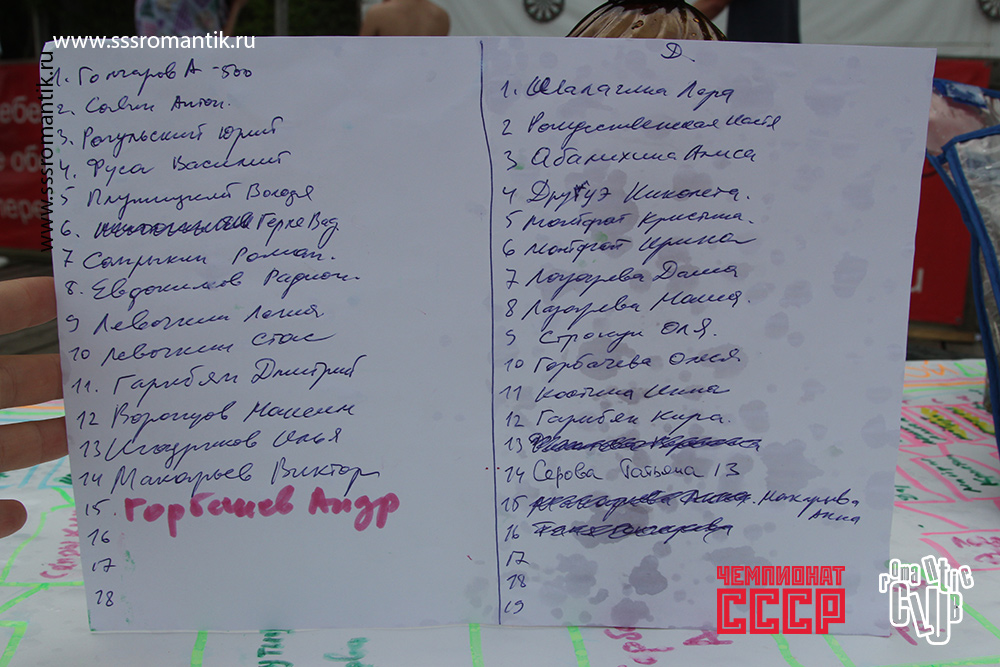 www.sssromantik.ru
www.sssromantik.ru
1. Гончаров А -500
2. Савин Антон.
3. Рогульский Юрий
4. Фуса Василий
5 Плулицкий Володя
6. Герке Вад.
7 Самрыкин Роман.
8. Евдокимов Радион.
9 Левочкин Логия
10 Левочкин Стас
11. Гарибян Дмитрий
12 Воронцов Максим
13 Илья
14 Макарьев Виктор
15. Горбачев Андр
16
17
18
Д.
1. Шалагина Лера
2 Рождественская Настя
3 Абанихина Алиса
4 Друтуэ Николета.
5 Монтфрат Кристина.
6 Монтфрат Ирина
7 Лазарева Даша
8 Лазарева Маша.
9 Строкун Оля.
10 Горбачева Олеся
11 Костина Инна
12 Гарибян Кира.
13
14 Серова Татьяна 13
15 Макарьева Анна
16
17
18
19
ЧЕМПИОНАТ
СССР
romantic
CLUB